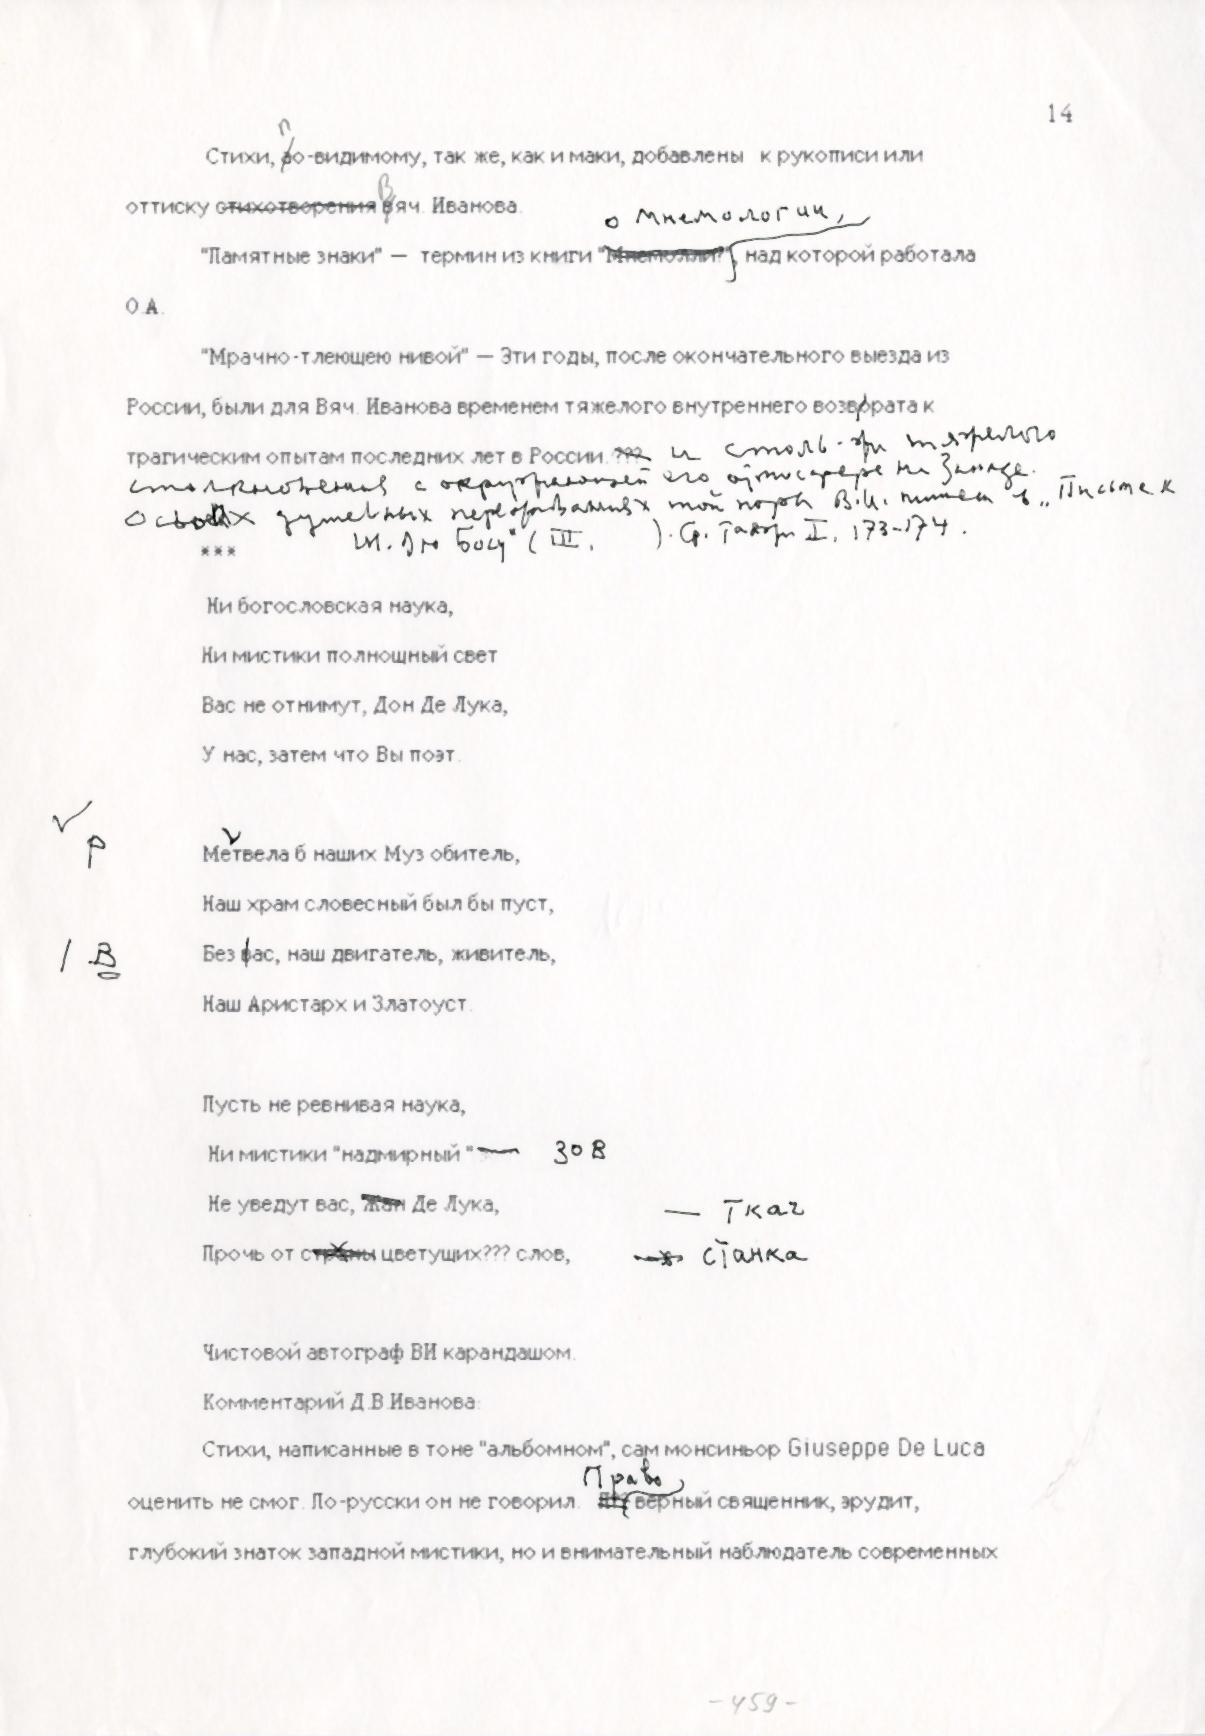 14
п
Стихи, ао-видимому, так же, как и маки, добавлены к рукописи или
В
оттиску стихотворения вяч. Иванова.
о мнемологии,
"Памятные знаки" — термин из книги "Мнемолли?", над которой работала
О.А.
"Мрачно-тлеющею нивой" — Эти годы, после окончательного выезда из
России, были для Вяч. Иванова временем тяжелого внутреннего возвората к
трагическим опытам последних лет в России. ??? и столь-же тяжелого
столкновения с окружающей его атмосфере на Западе.
О своих душевных переживаниях той поры В.И. пишет в „Письме к
Ш. Дю Босу" (III, ). Ср. Также I, 173-174.
***
Ни богословская наука,
Ни мистики полнощный свет
Вас не отнимут, Дон Де Лука,
У нас, затем что Вы поэт.
р
Метвела б наших Муз обитель,
Наш храм словесный был бы пуст,
В Без вас, наш двигатель, живитель,
Наш Аристарх и Златоуст.
Пусть не ревнивая наука,
Ни мистики "надмирный" — зов
Не уведут вас, Жан Де Лука, — ткач
Прочь от страны цветущих??? слов, станка
Чистовой автограф ВИ карандашом.
Комментарий Д.В.Иванова:
Стихи, написанные в тоне "альбомном", сам монсиньор Giuseppe De Luca
Право
оценить не смог. По-русски он не говорил. верный священник, эрудит,
глубокий знаток западной мистики, но и внимательный наблюдатель современных
-459-